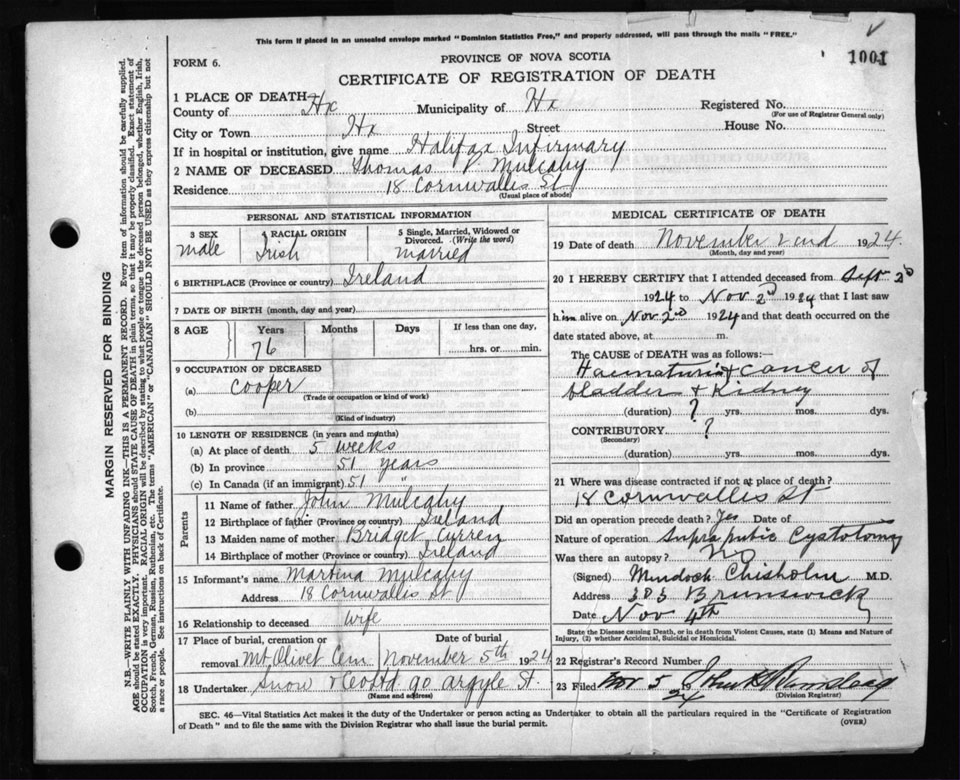 This form if placed in an unsealed envelope marked "Dominion Statistics Free," and properly addressed, will pass through the mails "FREE."
FORM 6.
PROVINCE OF NOVA SCOTIA
1001
CERTIFICATE OF REGISTRATION OF DEATH
1 PLACE OF DEATH
County of Hx Municipality of Hx Registered No.
(For use of Registrar General only)
City or Town Hx Street House No.
If in hospital or institution, give name Halifax Infirmary
2 NAME OF DECEASED Thomas J. Mulcahy
Residence 18 Cornwallis St
(Usual place of abode)
PERSONAL AND STATISTICAL INFORMATION
3 SEX 4 RACIAL ORIGIN 5 Single, Married, Widowed or Divorced. (Write the word)
male Irish married
6 BIRTHPLACE (Province or country) Ireland
7 DATE OF BIRTH (month, day and year)
8 AGE Years Months Days If less than one day,
76 hrs. or min.
9 OCCUPATION OF DECEASED
(a) Cooper
(Trade or occupation or kind of work)
(b)
(Kind of industry)
10 LENGTH OF RESIDENCE (in years and months)
(a) At place of death 5 weeks
(b) In province 51 years
(c) In Canada (if an immigrant) 51 "
Parents
11 Name of father John Mulcahy
12 Birthplace of father (Province or country) Ireland
13 Maiden name of mother Bridget Curren
14 Birthplace of mother (Province or country) Ireland
15 Informant's name Martina Mulcahy
Address 18 Cornwallis St
16 Relationship to deceased wife
17 Place of burial, cremation or Date of burial
removal Mt. Olivet Cem November 5th 1924
18 Undertaker Snow & Co Ltd 90 Argyle St.
(Name and address)
MEDICAL CERTIFICATE OF DEATH
19 Date of death November 2nd 1924.
(Month, day and year)
20 I HEREBY CERTIFY that I attended deceased from Sept 2d
1924 to Nov. 2d 1924 that I last saw
him alive on Nov. 2nd 1924 and that death occurred on the
date stated above, at m.
The CAUSE of DEATH was as follows:
Haematuria & cancer of
bladder & Kidney
(duration) ? yrs. mos. dys.
CONTRIBUTORY ?
(Secondary)
(duration) yrs. mos. dys.
21 Where was disease contracted if not at place of death?
18 Cornwallis St
Did an operation precede death? Yes Date of
Nature of operation Supra pubic Cystotomy
Was there an autopsy? No
(Signed) Murdoch Chisholm M.D.
Address 303 Brunswick
Date Nov 4th
State the Disease causing Death, or in death from Violent Causes, state (1) Means and Nature of
Injury, (2) whether Accidental, Suicidal or Homicidal.
22 Registrar's Record Number
23 Filed Nov 5 1924 John
(Division Registrar)
SEC. 46—Vital Statistics Act makes it the duty of the Undertaker or person acting as Undertaker to obtain all the particulars required in the "Certificate of Registration
of Death" and to file the same with the Division Registrar who shall issue the burial permit.
(OVER)
MARGIN RESERVED FOR BINDING
N.B.—WRITE PLAINLY WITH UNFADING INK—THIS IS A PERMANENT RECORD. Every item of information should be carefully supplied.
AGE should be stated EXACTLY. PHYSICIANS should STATE CAUSE OF DEATH in plain terms, so that it may be properly classified. Exact statement of
OCCUPATION is very important. RACIAL ORIGIN will be described by stating to what people or tongue the deceased person belonged, whether English, Irish,
Scotch, French, German, Russian, Ruthenian, etc. The terms "AMERICAN" or "CANADIAN" SHOULD NOT BE USED as they express citizenship but not
a race or people. See instructions on back of Certificate.